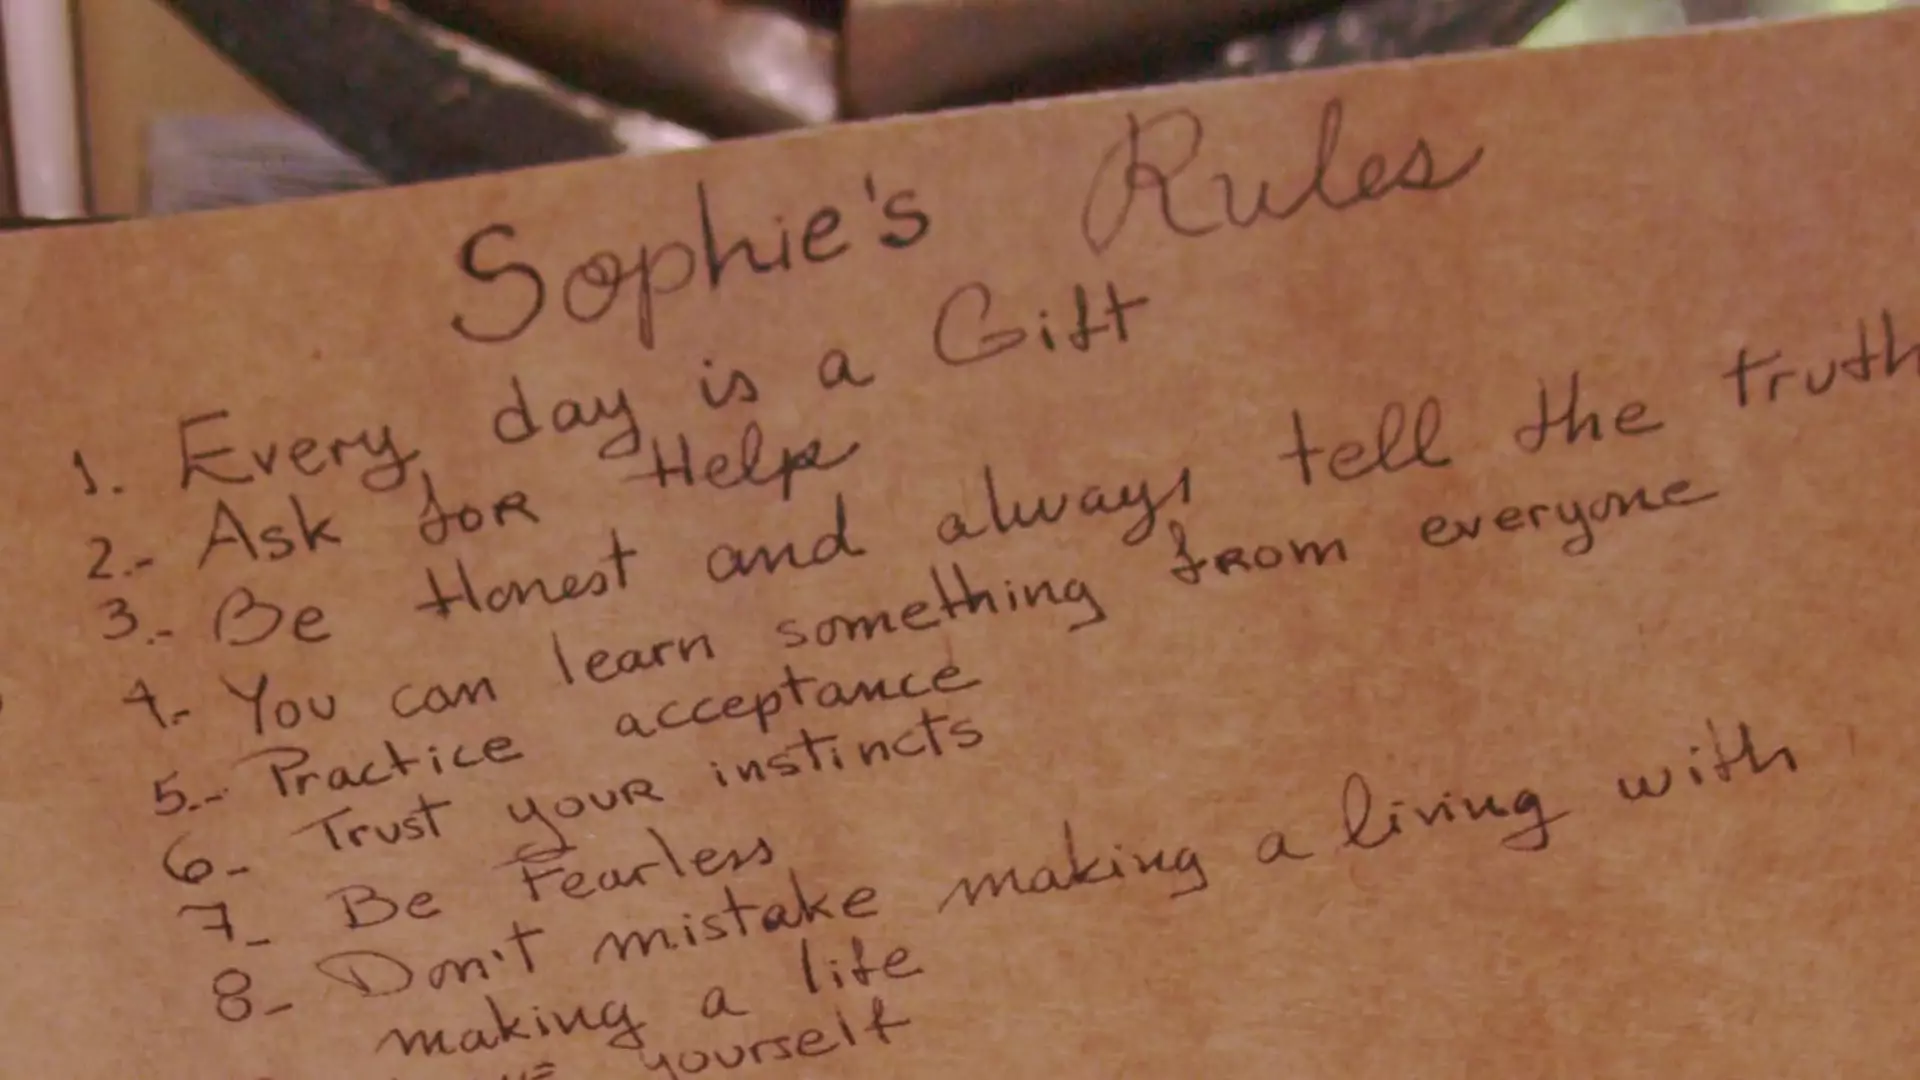 Sophie's Rules
1. Every day is a Gift
2.- Ask for Help
3.- Be Honest and always tell the truth
4.- You can learn something from everyone
5.- Practice acceptance
6- Trust your instincts
7- Be Fearless
8- Don't mistake making a living with
making a life
yourself